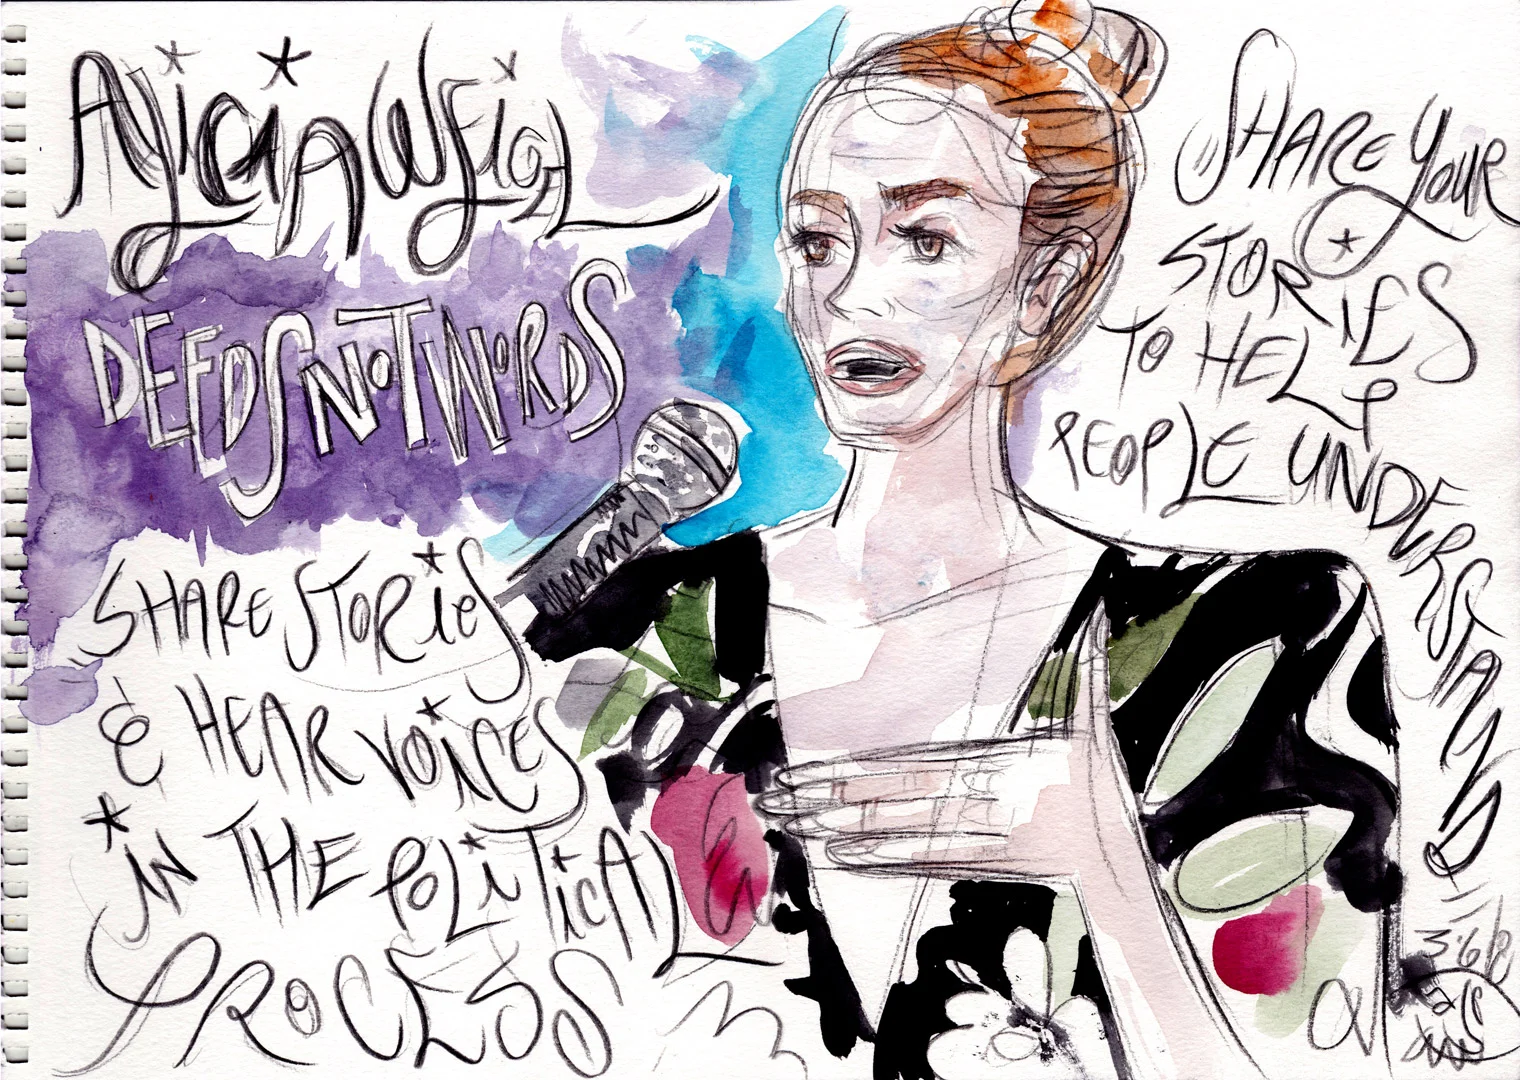 ALICIA WEIGEL
DEEDS NOT WORDS
SHARE STORIES
& HEAR VOICES
IN THE POLITICAL
PROCESS
SHARE YOUR
STORIES
TO HELP
PEOPLE UNDERSTAND